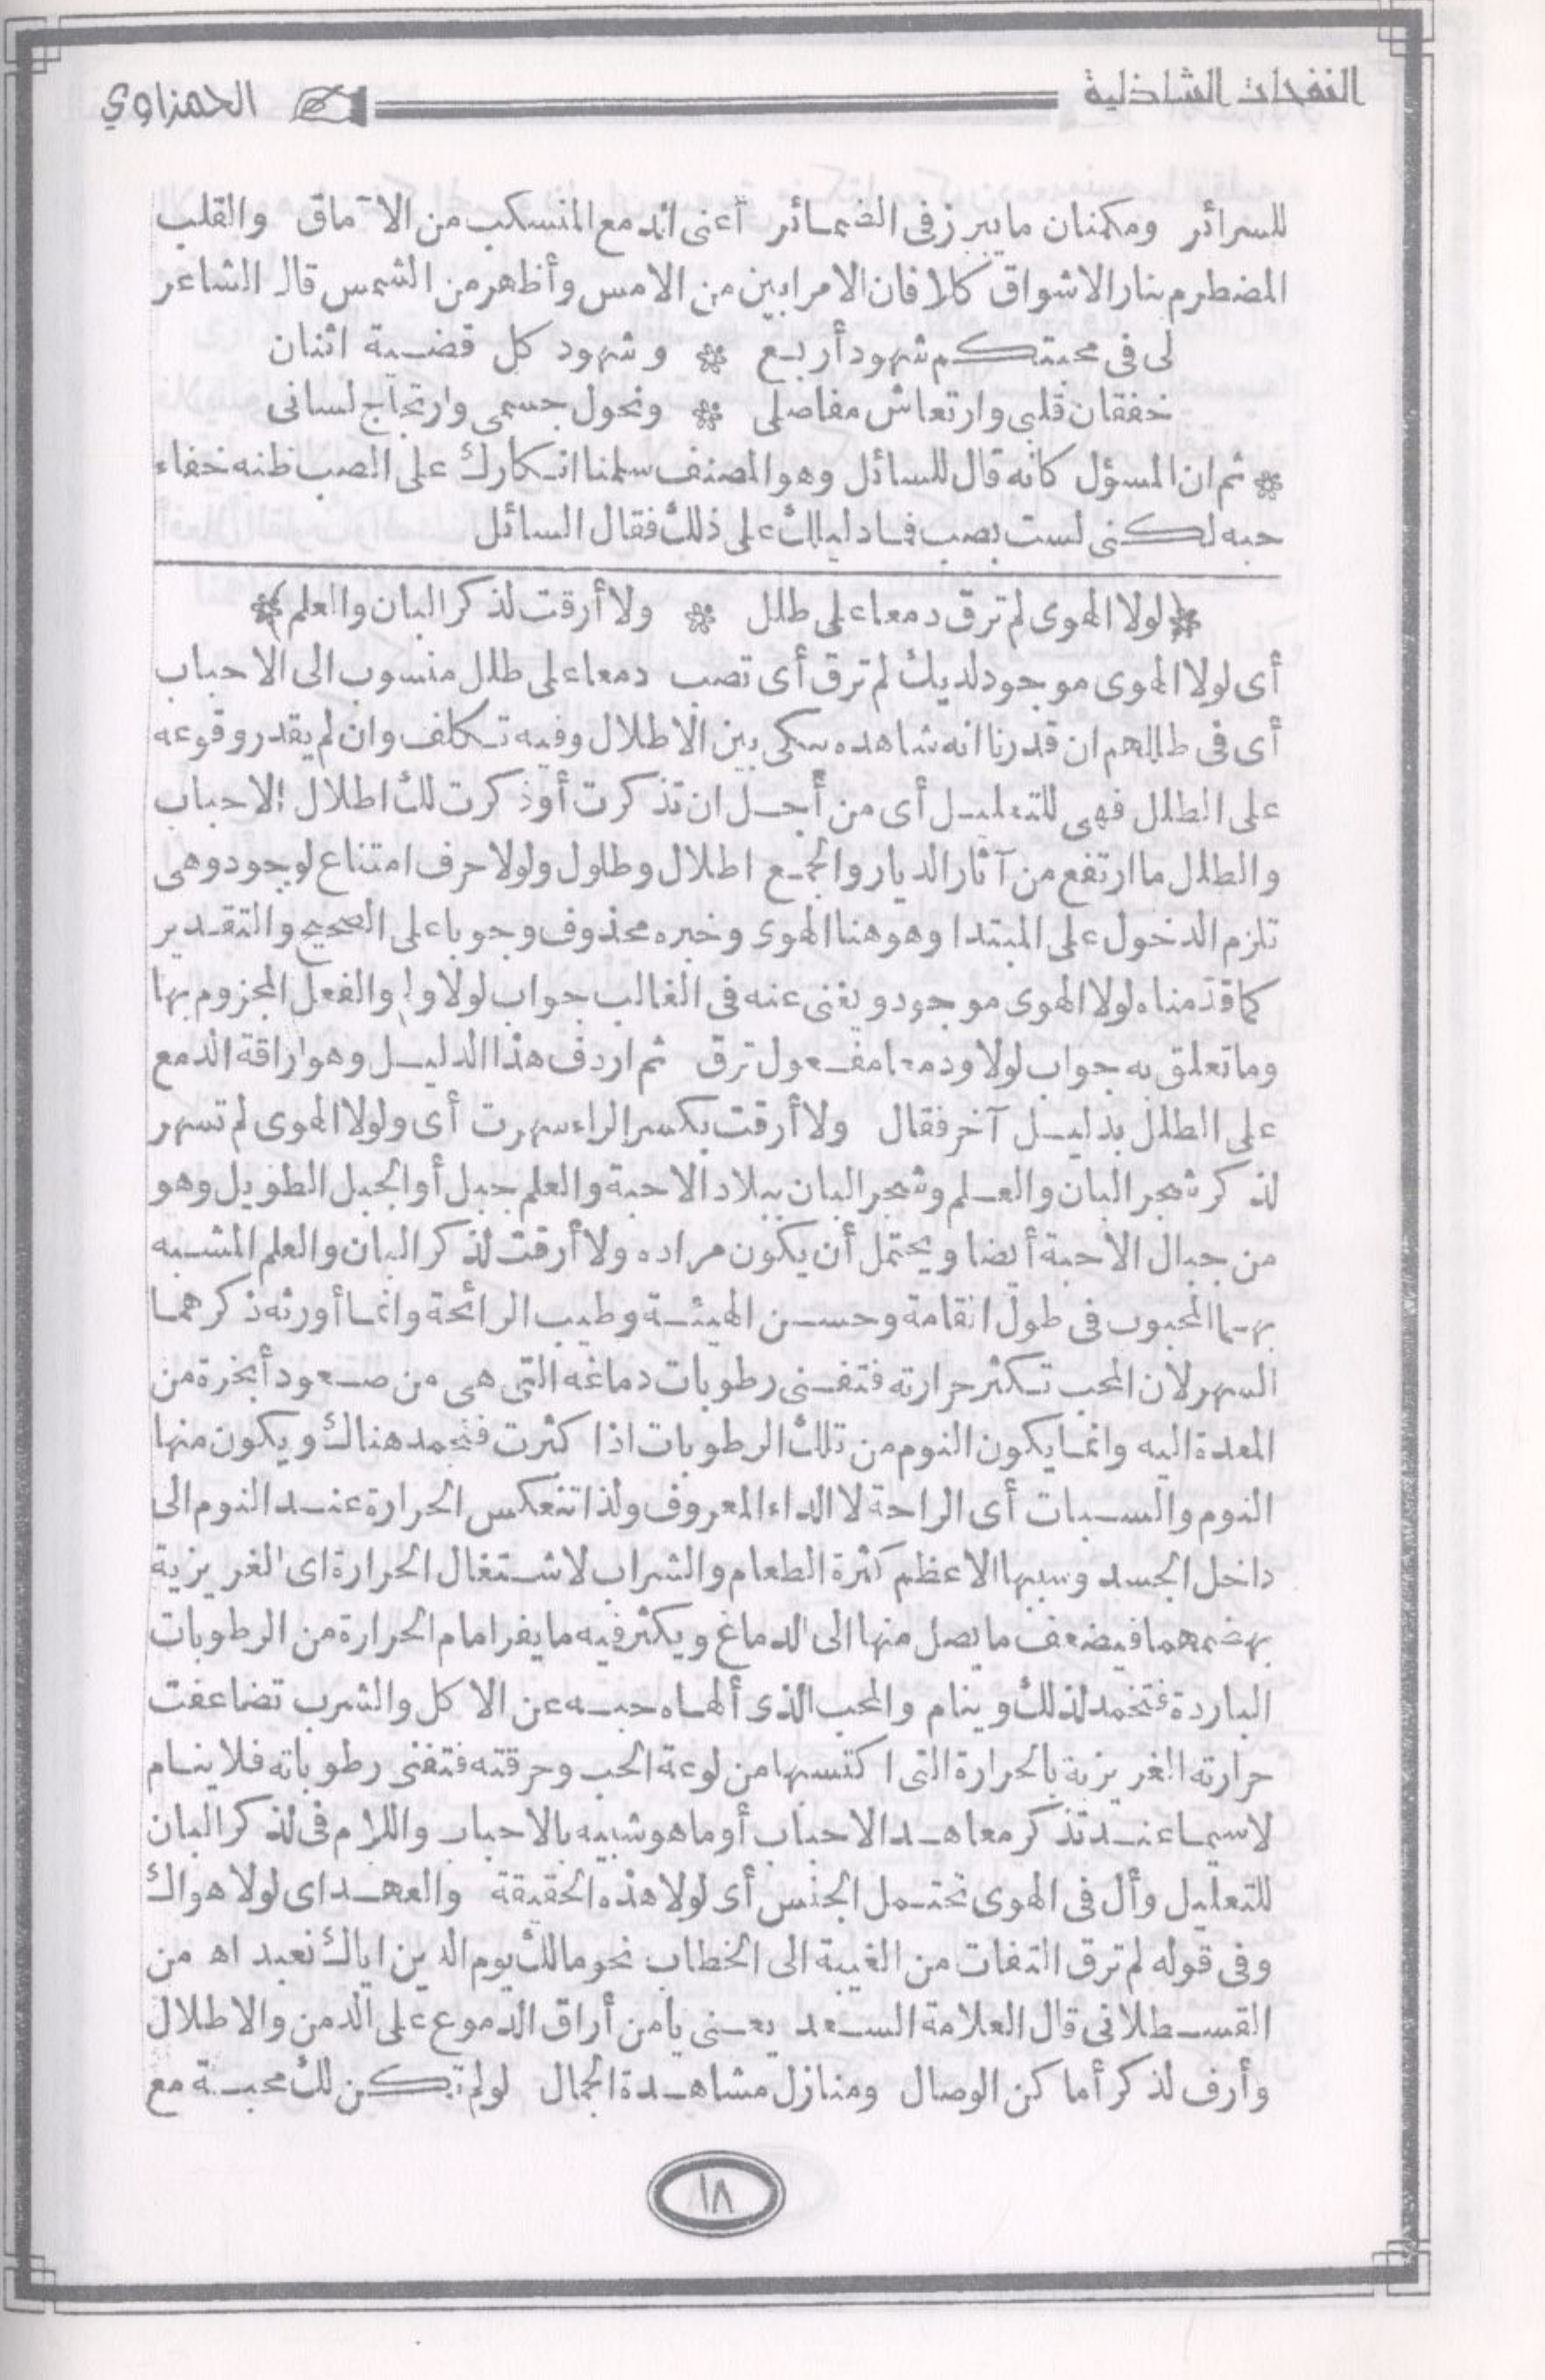 النفحات الشاذلية
الحمزاوي
للسرائر ومكمنان ما يبرز فى الضمائر أعنى الدمع المنسكب من الآماق والقلب
المضطرم بنار الاشواق كلا فان الامر ابين من الامس وأظهر من الشمس قال الشاعر
لى فى محبتكم شهود أربع * وشهود كل قضية اثنان
خفقان قلبى وارتعاش مفاصلى * ونحول جسمى وارتجاج لسانى
* ثم ان المسؤل كأنه قال للسائل وهو المصنف سلمنا انكارك على الصب ظنه خفاء
حبه لكنى لست بصب فما دليلك على ذلك فقال السائل
* لولا الهوى لم ترق دمعا على طلل * ولا أرقت لذكر البان والعلم *
أى لولا الهوى موجود لديك لم ترق أى تصب دمعا على طلل منسوب الى الاحباب
أى فى طللهم ان قدرنا انه شاهده بكى بين الاطلال وفيه تكلف وان لم يقدر وقوعه
على الطلل فهى للتعليل أى من أجل ان تذكرت أو ذكرت لك اطلال الاحباب
والطلل ما ارتفع من آثار الديار والجمع اطلال وطلول ولولا حرف امتناع لوجود وهى
تلزم الدخول على المبتدا وهو هنا الهوى وخبره محذوف وجوبا على الصحيح والتقدير
كما قدمناه لولا الهوى موجود ويغنى عنه فى الغالب جواب لولا ولم والفعل المجزوم بها
وما تعلق به جواب لولا ودمعا مفعول ترق ثم اردف هذا الدليل وهو اراقة الدمع
على الطلل بدليل آخر فقال ولا أرقت بكسر الراء سهرت أى ولولا الهوى لم تسهر
لذكر شجر البان والعلم وشجر البان ببلاد الاحبة والعلم جبل أو الجبل الطويل وهو
من جبال الاحبة أيضا ويحتمل أن يكون مراده ولا أرقت لذكر البان والعلم المشبه
بهما المحبوب فى طول القامة وحسن الهيئة وطيب الرائحة وانما أورثه ذكرهما
السهر لان المحب تكثر حرارته فتفنى رطوبات دماغه التى هى من صعود أبخرة من
المعدة اليه وانما يكون النوم من تلك الرطوبات اذا كثرت فتجمد هناك ويكون منها
النوم والسبات أى الراحة لا الداء المعروف ولذا تنعكس الحرارة عند النوم الى
داخل الجسد وسببها الاعظم كثرة الطعام والشراب لاشتغال الحرارة اى الغريزية
بهضمهما فيضعف ما يصل منها الى الدماغ ويكثر فيه ما يفر امام الحرارة من الرطوبات
الباردة فتخمد لذلك وينام والمحب الذى ألهاه حبه عن الاكل والشرب تضاعفت
حرارته الغريزية بالحرارة التى اكتسبها من لوعة الحب وحرقته فتفنى رطوباته فلا ينام
لاسيما عند تذكر معاهد الاحباب أو ما هو شبيه بالاحباب واللام فى لذكر البان
للتعليل وأل فى الهوى تحتمل الجنس أى لولا هذه الحقيقة والعهد اى لولا هواك
وفى قوله لم ترق التفات من الغيبة الى الخطاب نحو مالك يوم الدين اياك نعبد اه من
القسطلانى قال العلامة السعد يعنى يا من أراق الدموع على الدمن والاطلال
وأرق لذكر أماكن الوصال ومنازل مشاهدة الجمال لو لم تكن لك محبة مع
١٨